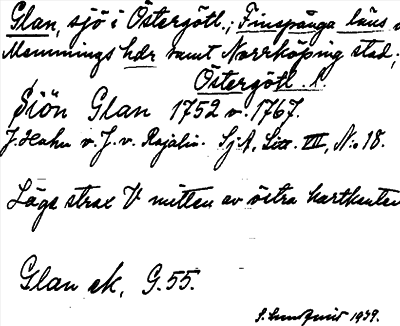 Glan, sjö i Östergötl.; Finspånga läns o
Memmings hdr samt Norrköping stad;
Östergötl. l.
Siön Glan 1752 o. 1767.
J. Hahn o. J. v. Rajalin. SjA, Litt. VII, N:o 18.
Läge strax V mitten av östra kartkanten
Glan ek. G. 55.
S. Lundquist 1939.